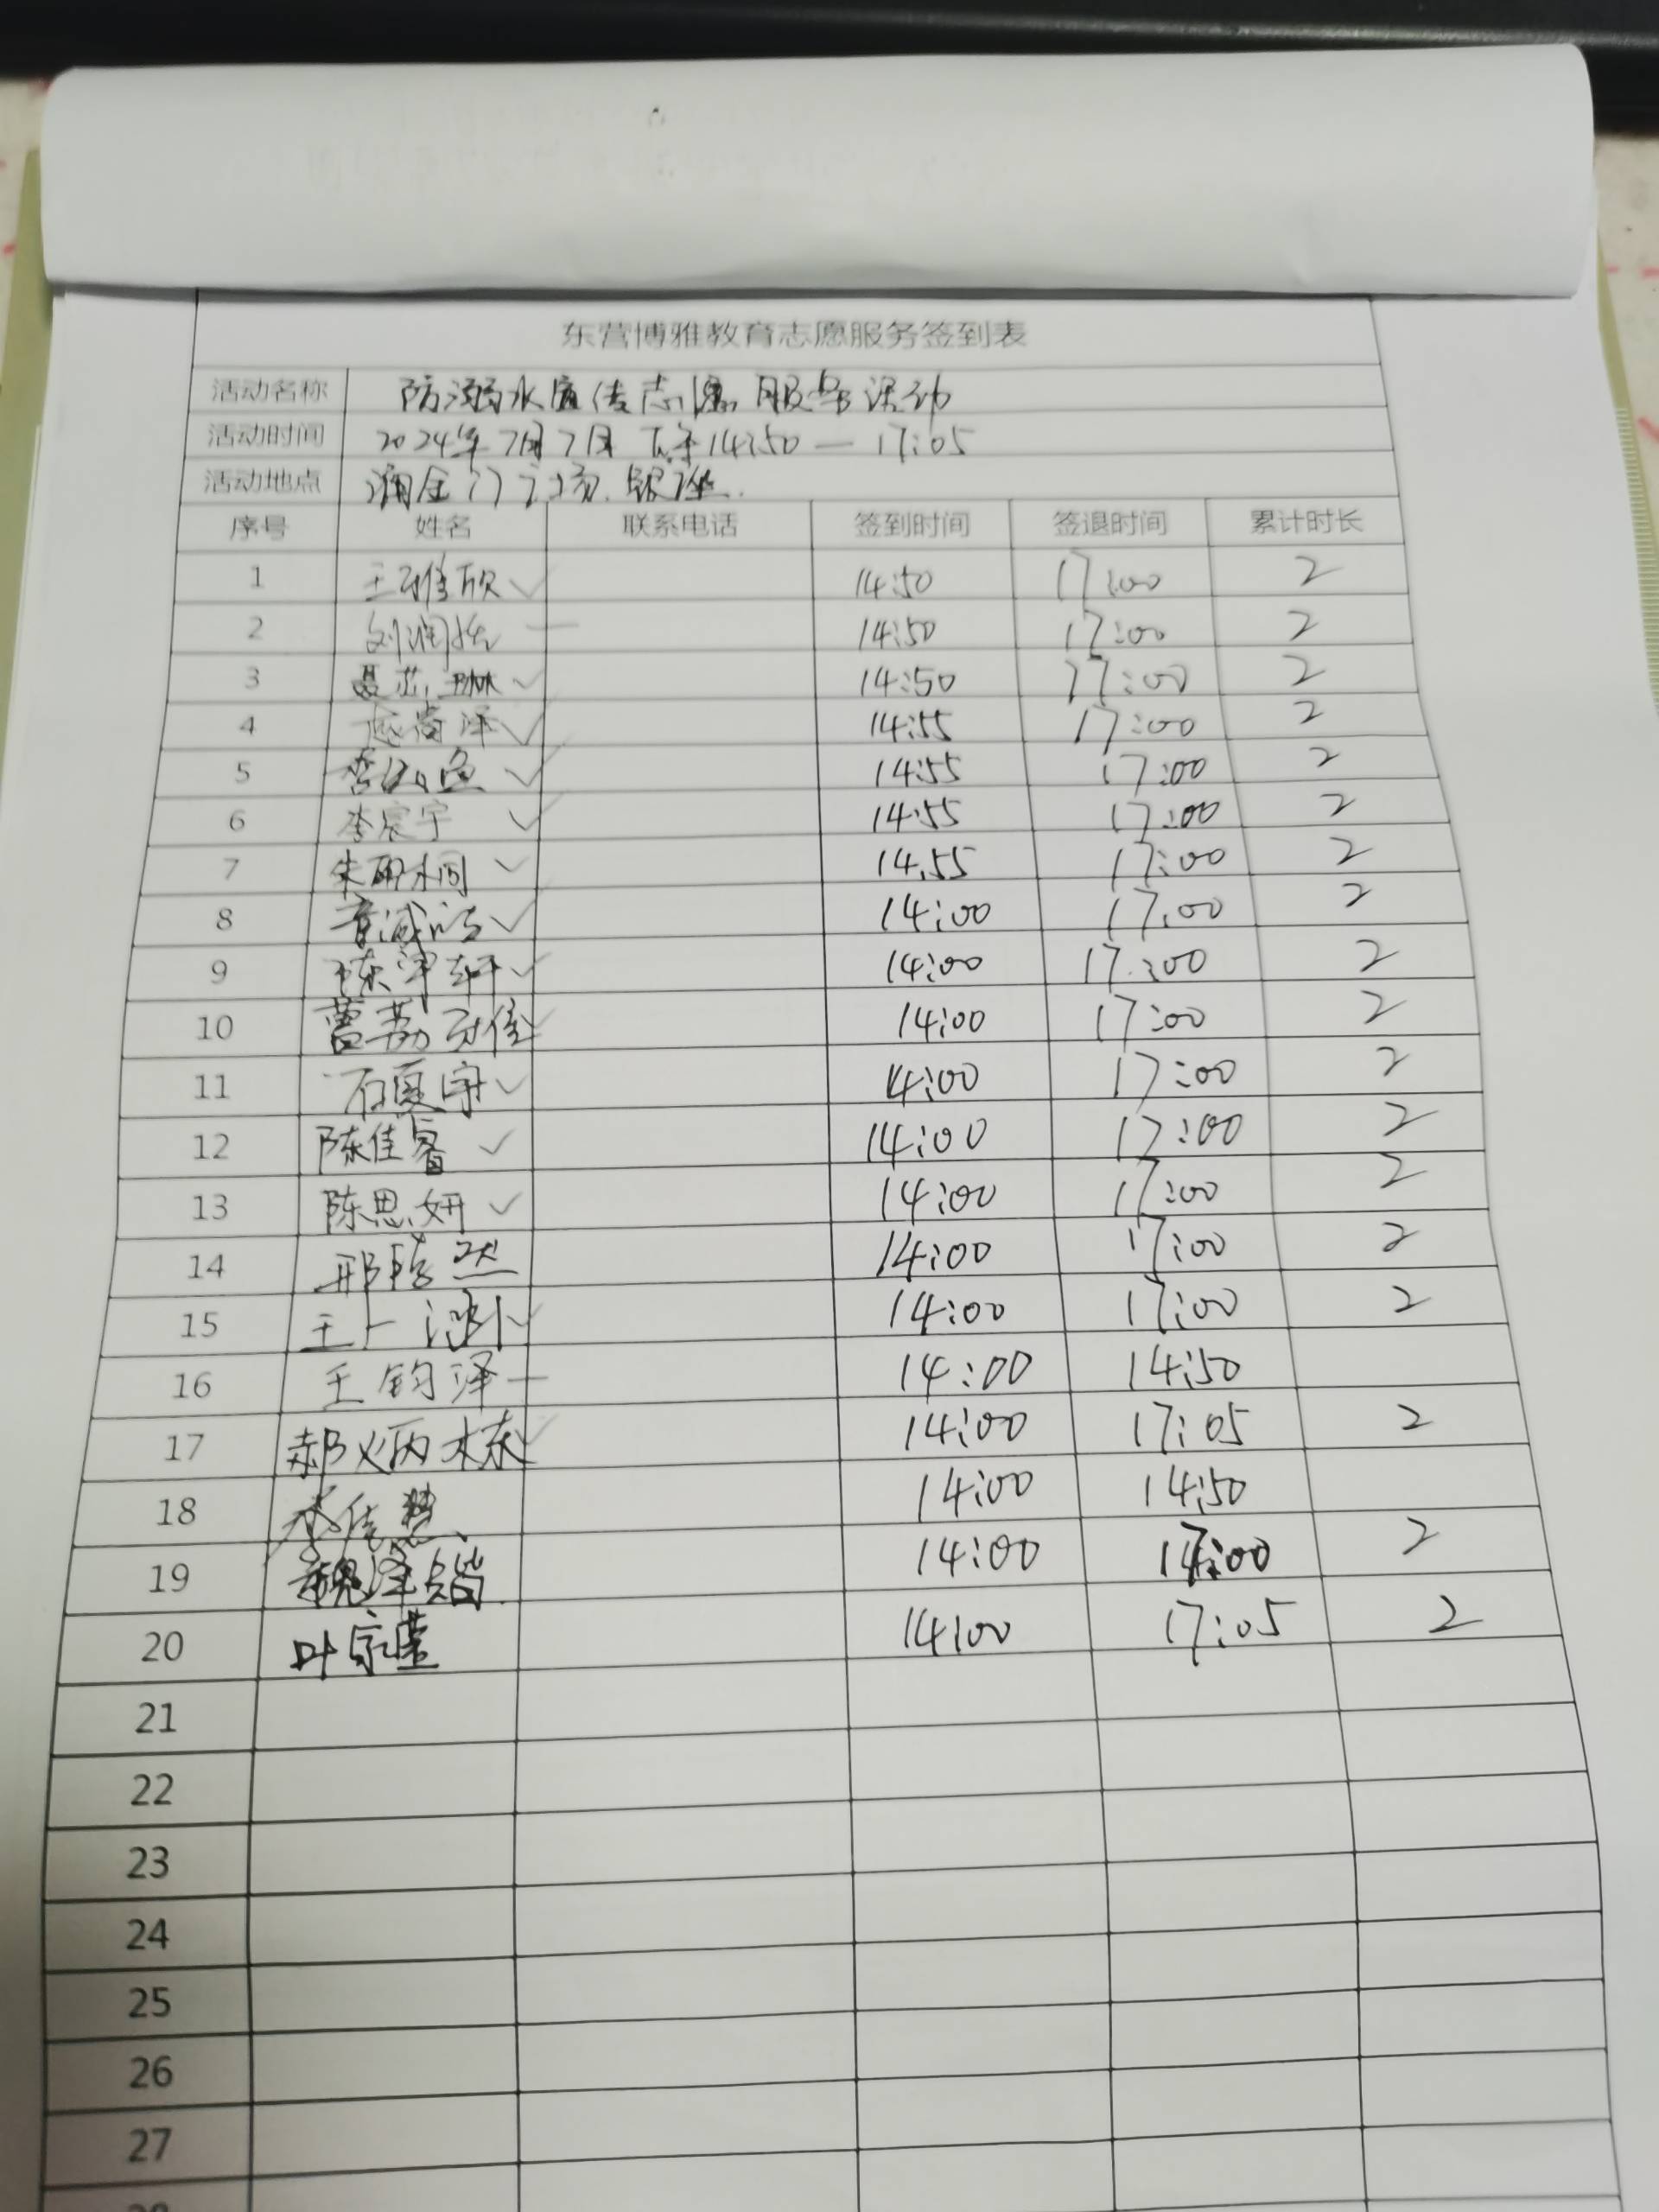 东营博雅教育志愿服务签到表
活动名称 防溺水宣传志愿服务活动
活动时间 2024年7月7日 下午14:50—17:05
活动地点 广场.银座.
序号 姓名 联系电话 签到时间 签退时间 累计时长
1 王雅欣 ✓ 14:50 17:00 2
2 刘润 — 14:50 17:00 2
3 聂芯琳 ✓ 14:50 17:00 2
4 尚泽 ✓ 14:55 17:00 2
5 ✓ 14:55 17:00 2
6 李宸宇 ✓ 14:55 17:00 2
7 朱研 ✓ 14.55 17:00 2
8 ✓ 14:00 17:00 2
9 陈泽轩 ✓ 14:00 17:00 2
10 曹荔 ✓ 14:00 17:00 2
11 石夏宇 ✓ 14:00 17:00 2
12 陈佳睿 ✓ 14:00 17:00 2
13 陈思妍 ✓ 14:00 17:00 2
14 邢皓然 14:00 17:00 2
15 王一 ✓ 14:00 17:00 2
16 王钧泽 — 14:00 14:50
17 郝炳栋 ✓ 14:00 17:05 2
18 14:00 14:50
19 魏泽锴 14:00 17:00 2
20 叶家莹 14:00 17:05 2
21
22
23
24
25
26
27